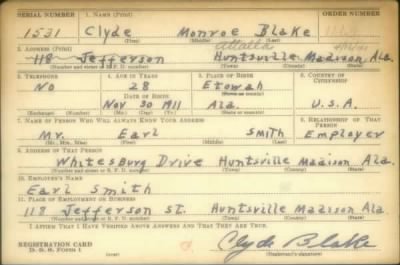 SERIAL NUMBER 1. NAME (Print) ORDER NUMBER
1531 Clyde Monroe Blake
(First) (Middle) (Last)
2. ADDRESS (Print) Attalla
118 Jefferson Huntsville Madison Ala.
(Number and street or R. F. D. number) (Town) (County) (State)
3. TELEPHONE 4. AGE IN YEARS 5. PLACE OF BIRTH 6. COUNTRY OF CITIZENSHIP
No 28 Etowah
DATE OF BIRTH (Town or county)
Nov 30 1911 Ala. U.S.A.
(Exchange) (Number) (Mo.) (Day) (Yr.) (State or country)
7. NAME OF PERSON WHO WILL ALWAYS KNOW YOUR ADDRESS 8. RELATIONSHIP OF THAT PERSON
Mr. Earl Smith Employer
(Mr., Mrs., Miss) (First) (Middle) (Last)
9. ADDRESS OF THAT PERSON
Whitesburg Drive Huntsville Madison Ala.
(Number and street or R. F. D. number) (Town) (County) (State)
10. EMPLOYER'S NAME
Earl Smith
11. PLACE OF EMPLOYMENT OR BUSINESS
118 Jefferson St. Huntsville Madison Ala.
(Number and street or R. F. D. number) (Town) (County) (State)
I AFFIRM THAT I HAVE VERIFIED ABOVE ANSWERS AND THAT THEY ARE TRUE.
REGISTRATION CARD
D. S. S. Form 1
Clyde Blake
(Registrant's signature)